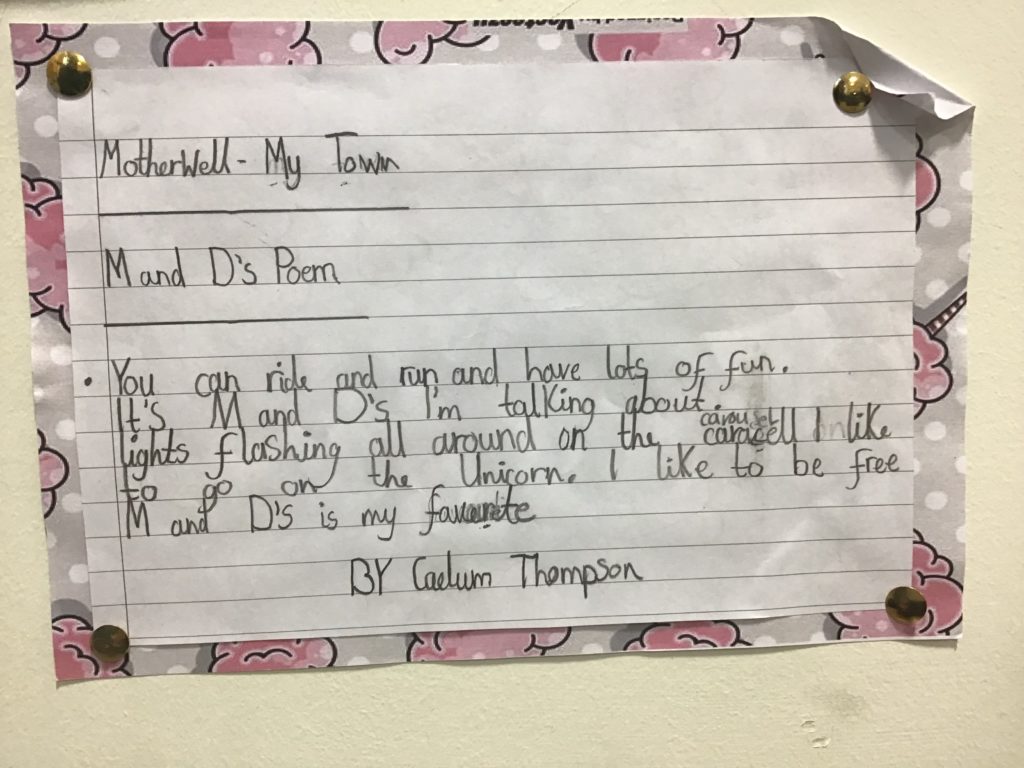 Designed by Vecteezy
MotherWell - My Town
M and D's Poem
• You can ride and run and have lots of fun.
It's M and D's I'm talking about.
carousel
lights flashing all around on the caracell I like
to go on the Unicorn. I like to be free
M and D's is my favourite
BY Caelum Thompson